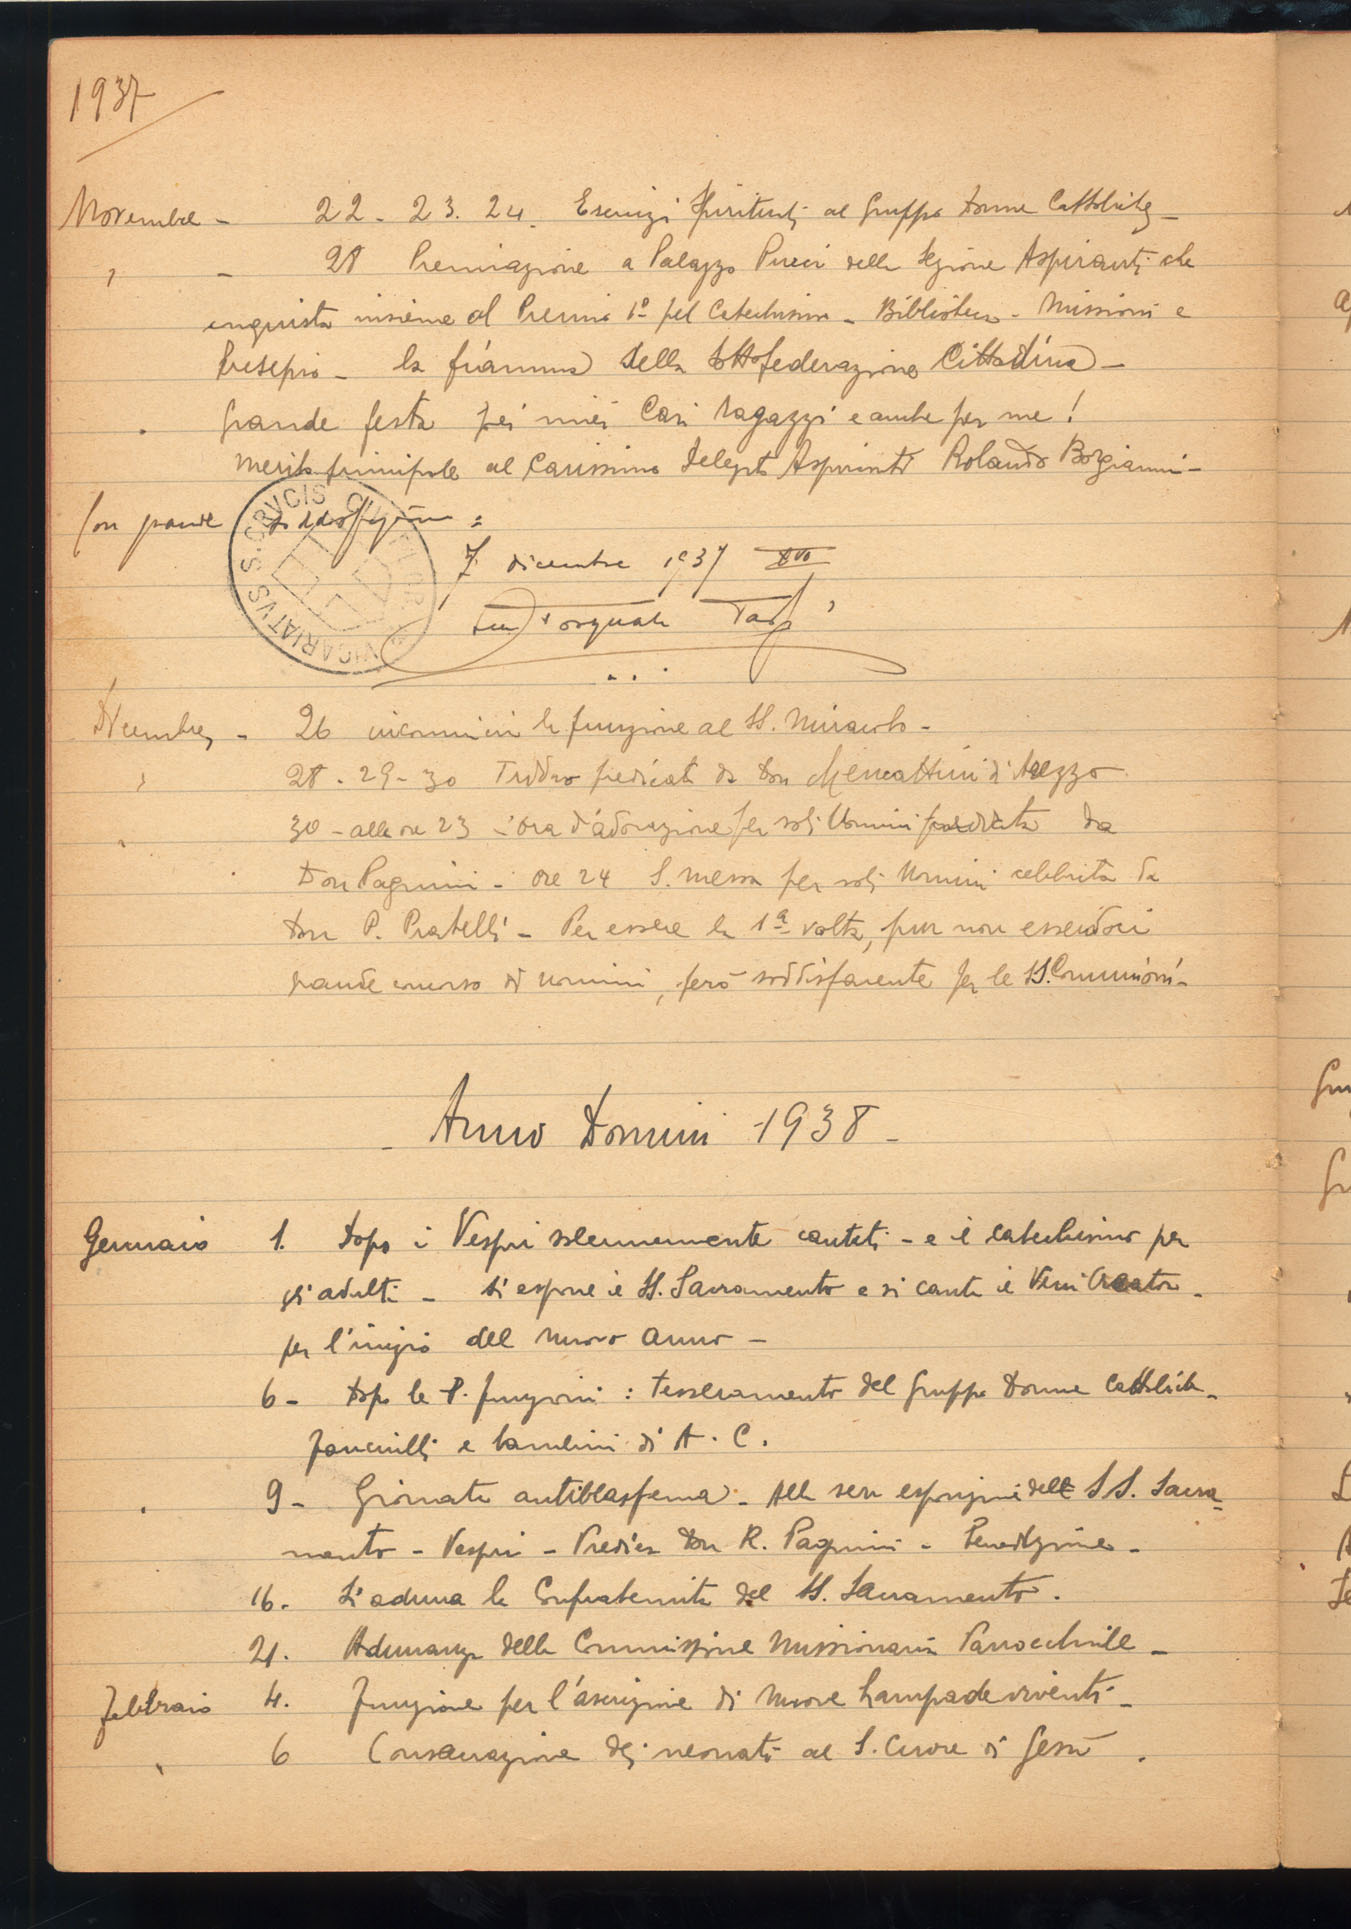 1937
Novembre - 22 - 23. 24. Esercizi Spirituali al Gruppo Donne Cattoliche -
" - 28 Premiazione a Palazzo Pucci della Sezione Aspiranti che
conquista insieme al Premio 1º pel Catechismo - Biblioteca - Missioni e
Presepio - la fiamma della Sottofederazione Cittadina -
Grande festa pei miei Cari ragazzi e anche per me!
Merito principale al Carissimo Delegato Aspiranti Rolando Borgianni -
Con grande soddisfazione =
VICARIATVS S. CRVCIS
7 dicembre 1937 XVI
Pasquale
Dicembre - 26 incomincia la funzione al SS. Miracolo -
" 28 - 29 - 30 Triduo predicato da Don Mencattini di Arezzo
30 - alle ore 23 - Ora d'adorazione per soli Uomini predicata da
Don Pagnini - ore 24 S. Messa per soli Uomini celebrata da
Don P. Pratelli - Per essere la 1ª volta, pur non essendoci
grande concorso di uomini, però soddisfacente per le SS. Comunioni -
- Anno Domini 1938 -
Gennaio 1. Dopo i Vespri solennemente cantati - e il catechismo per
gli adulti - si espone il SS. Sacramento e si canta il Veni Creator -
per l'inizio del nuovo anno -
6 - Dopo le P. funzioni: tesseramento del Gruppo Donne Cattoliche -
fanciulli e bambini di A. C.
9 - Giornata antiblasfema - Alla sera esposizione del SS. Sacra-
mento - Vespri - Predica Don R. Pagnini - Benedizione -
16. Si aduna la Confraternita del SS. Sacramento.
21. Adunanza della Commissione Missionaria Parrocchiale -
Febbraio 4. Funzione per l'ascrizione di nuove Lampade viventi -
" 6 Consacrazione dei neonati al S. Cuore di Gesù.